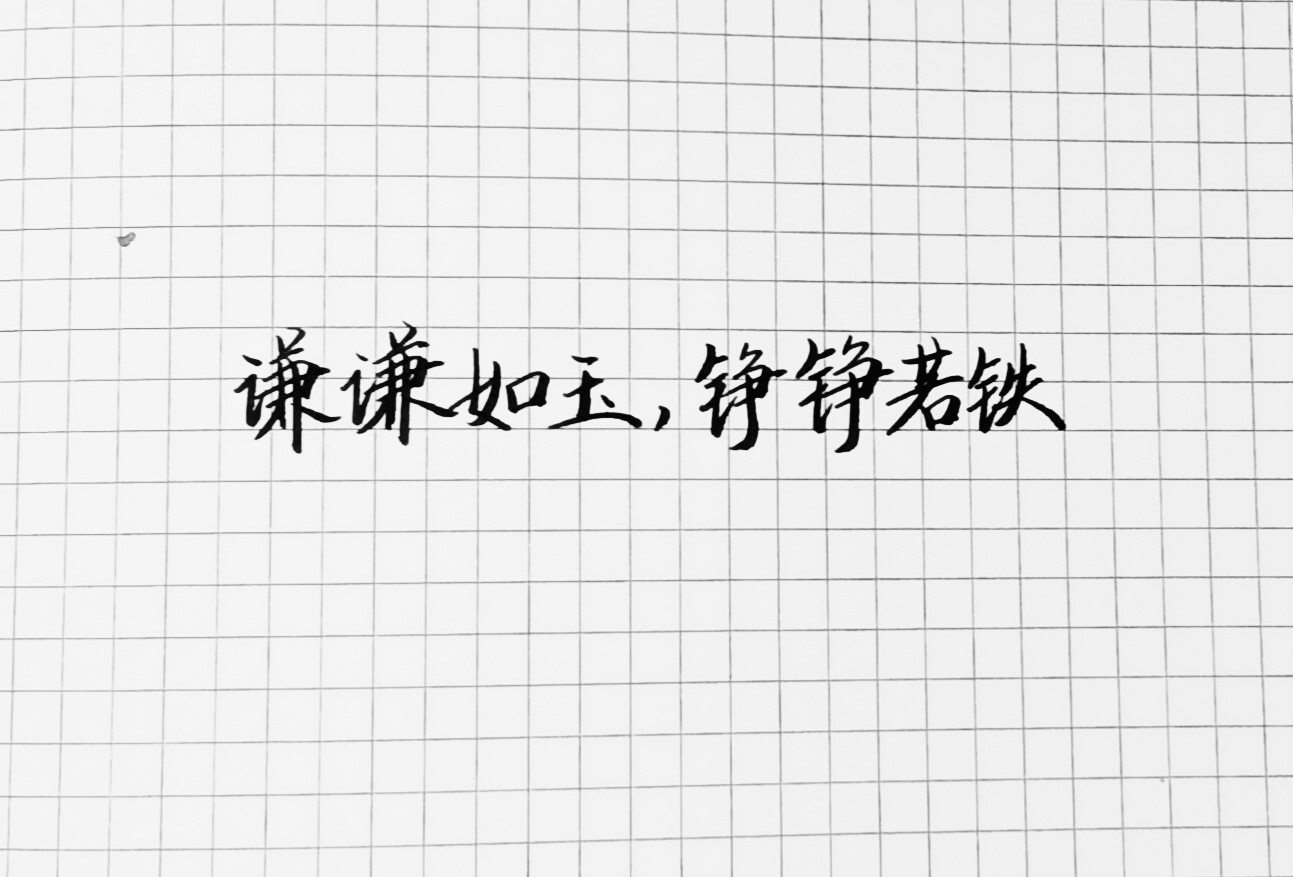 谦谦如玉,铮铮若铁